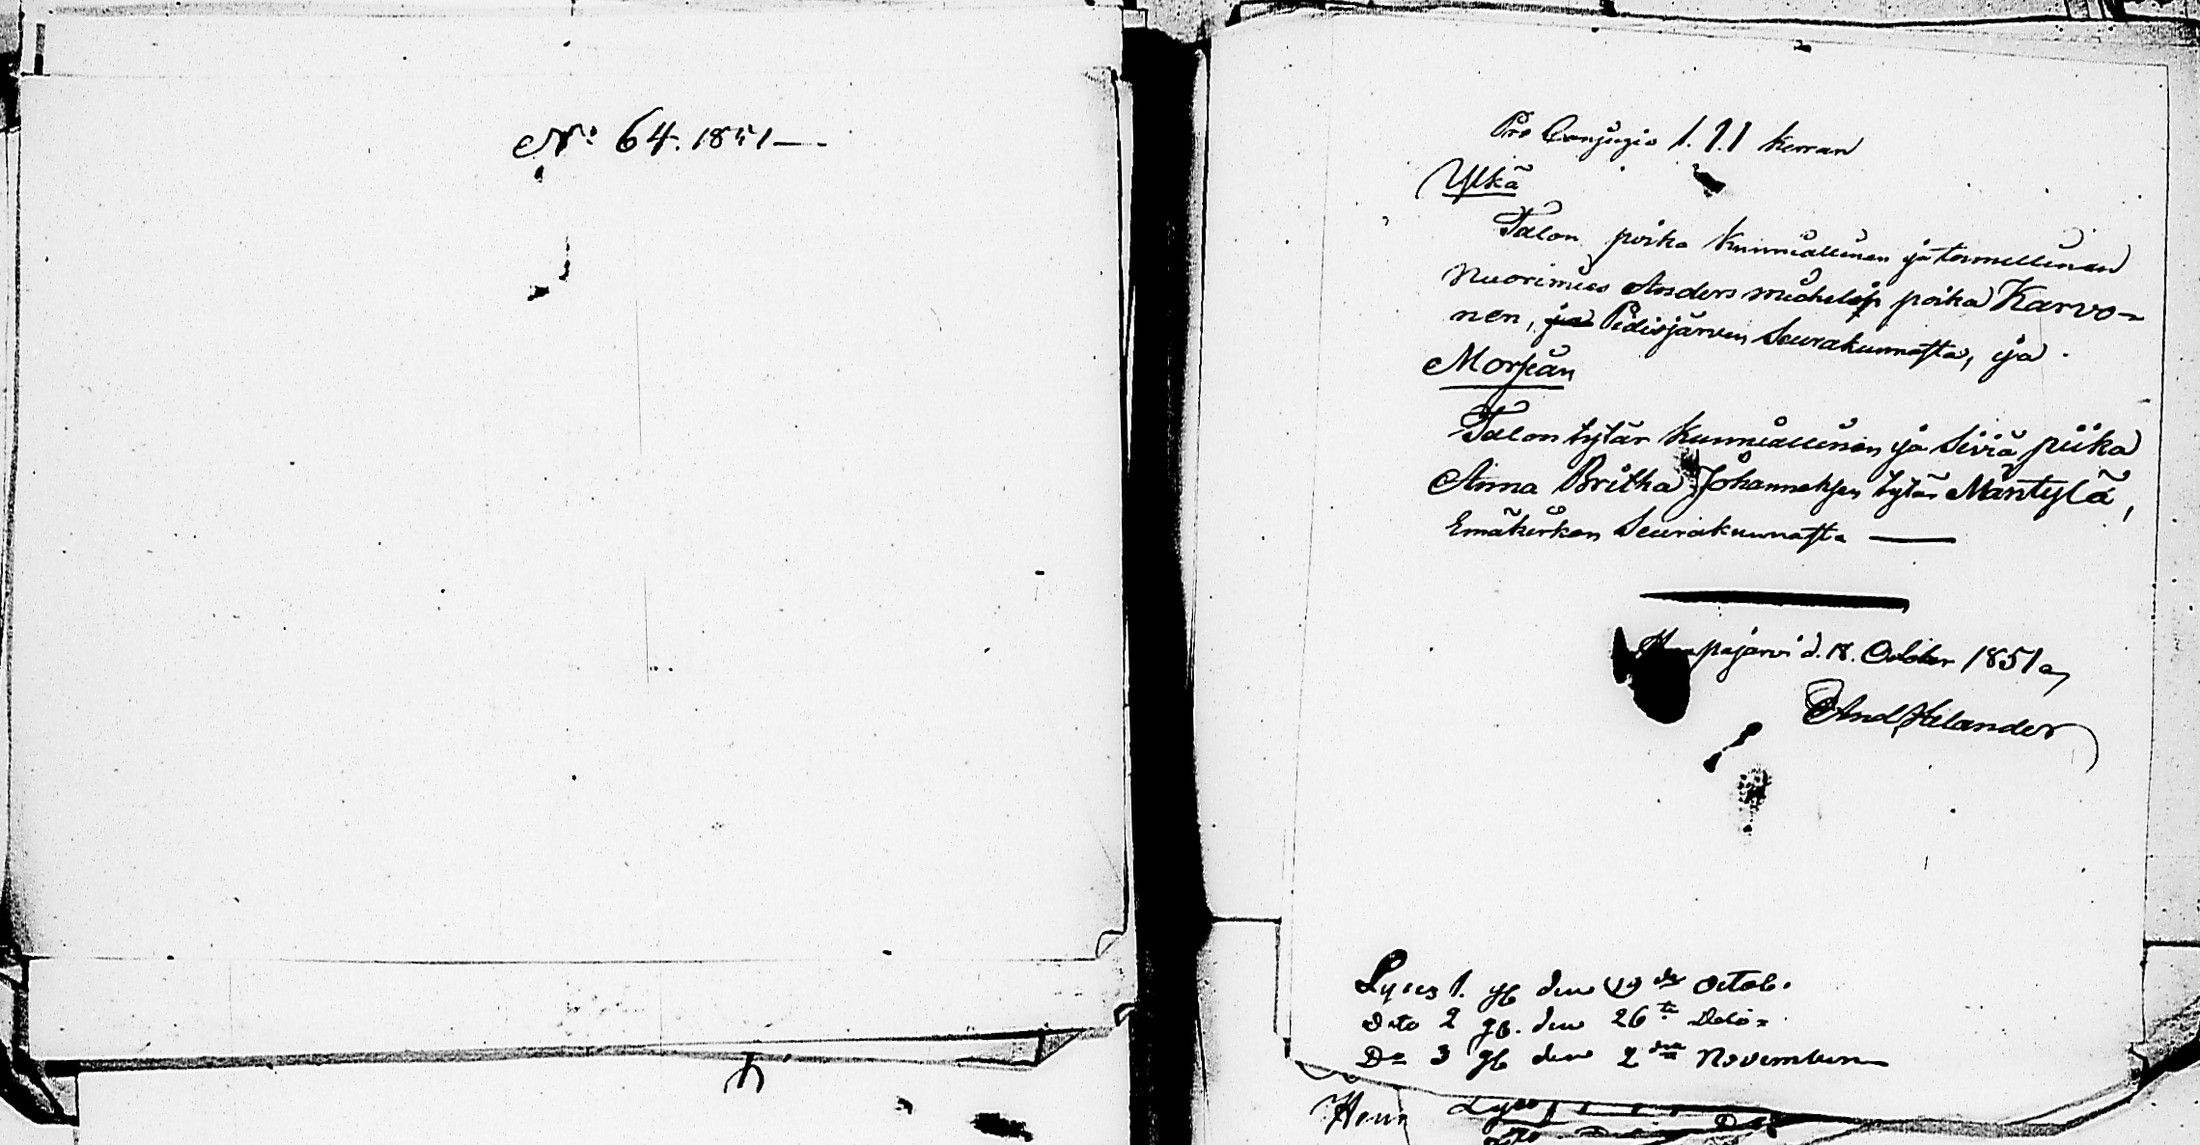 No 64. 1851 —
Pro Conjugio 1. 1. 1 kerran
Ylkä
Talon poika kunniallinen ja toimellinen
Nuorimies Anders Michelin poika Karvo-
nen, ja Pidisjärven Seurakunnasta, ja
Morsian
Talon tytär kunniallinen ja Siviä piika
Anna Britha Johanneksen tytär Mäntylä,
Emäkirkon Seurakunnasta —
Haapajärvi d. 18. October 1851
And Helander
Lyses 1. g den 19 de Octob.
Dito 2 g. den 26 te Dito
Do 3 g den 2 dra November